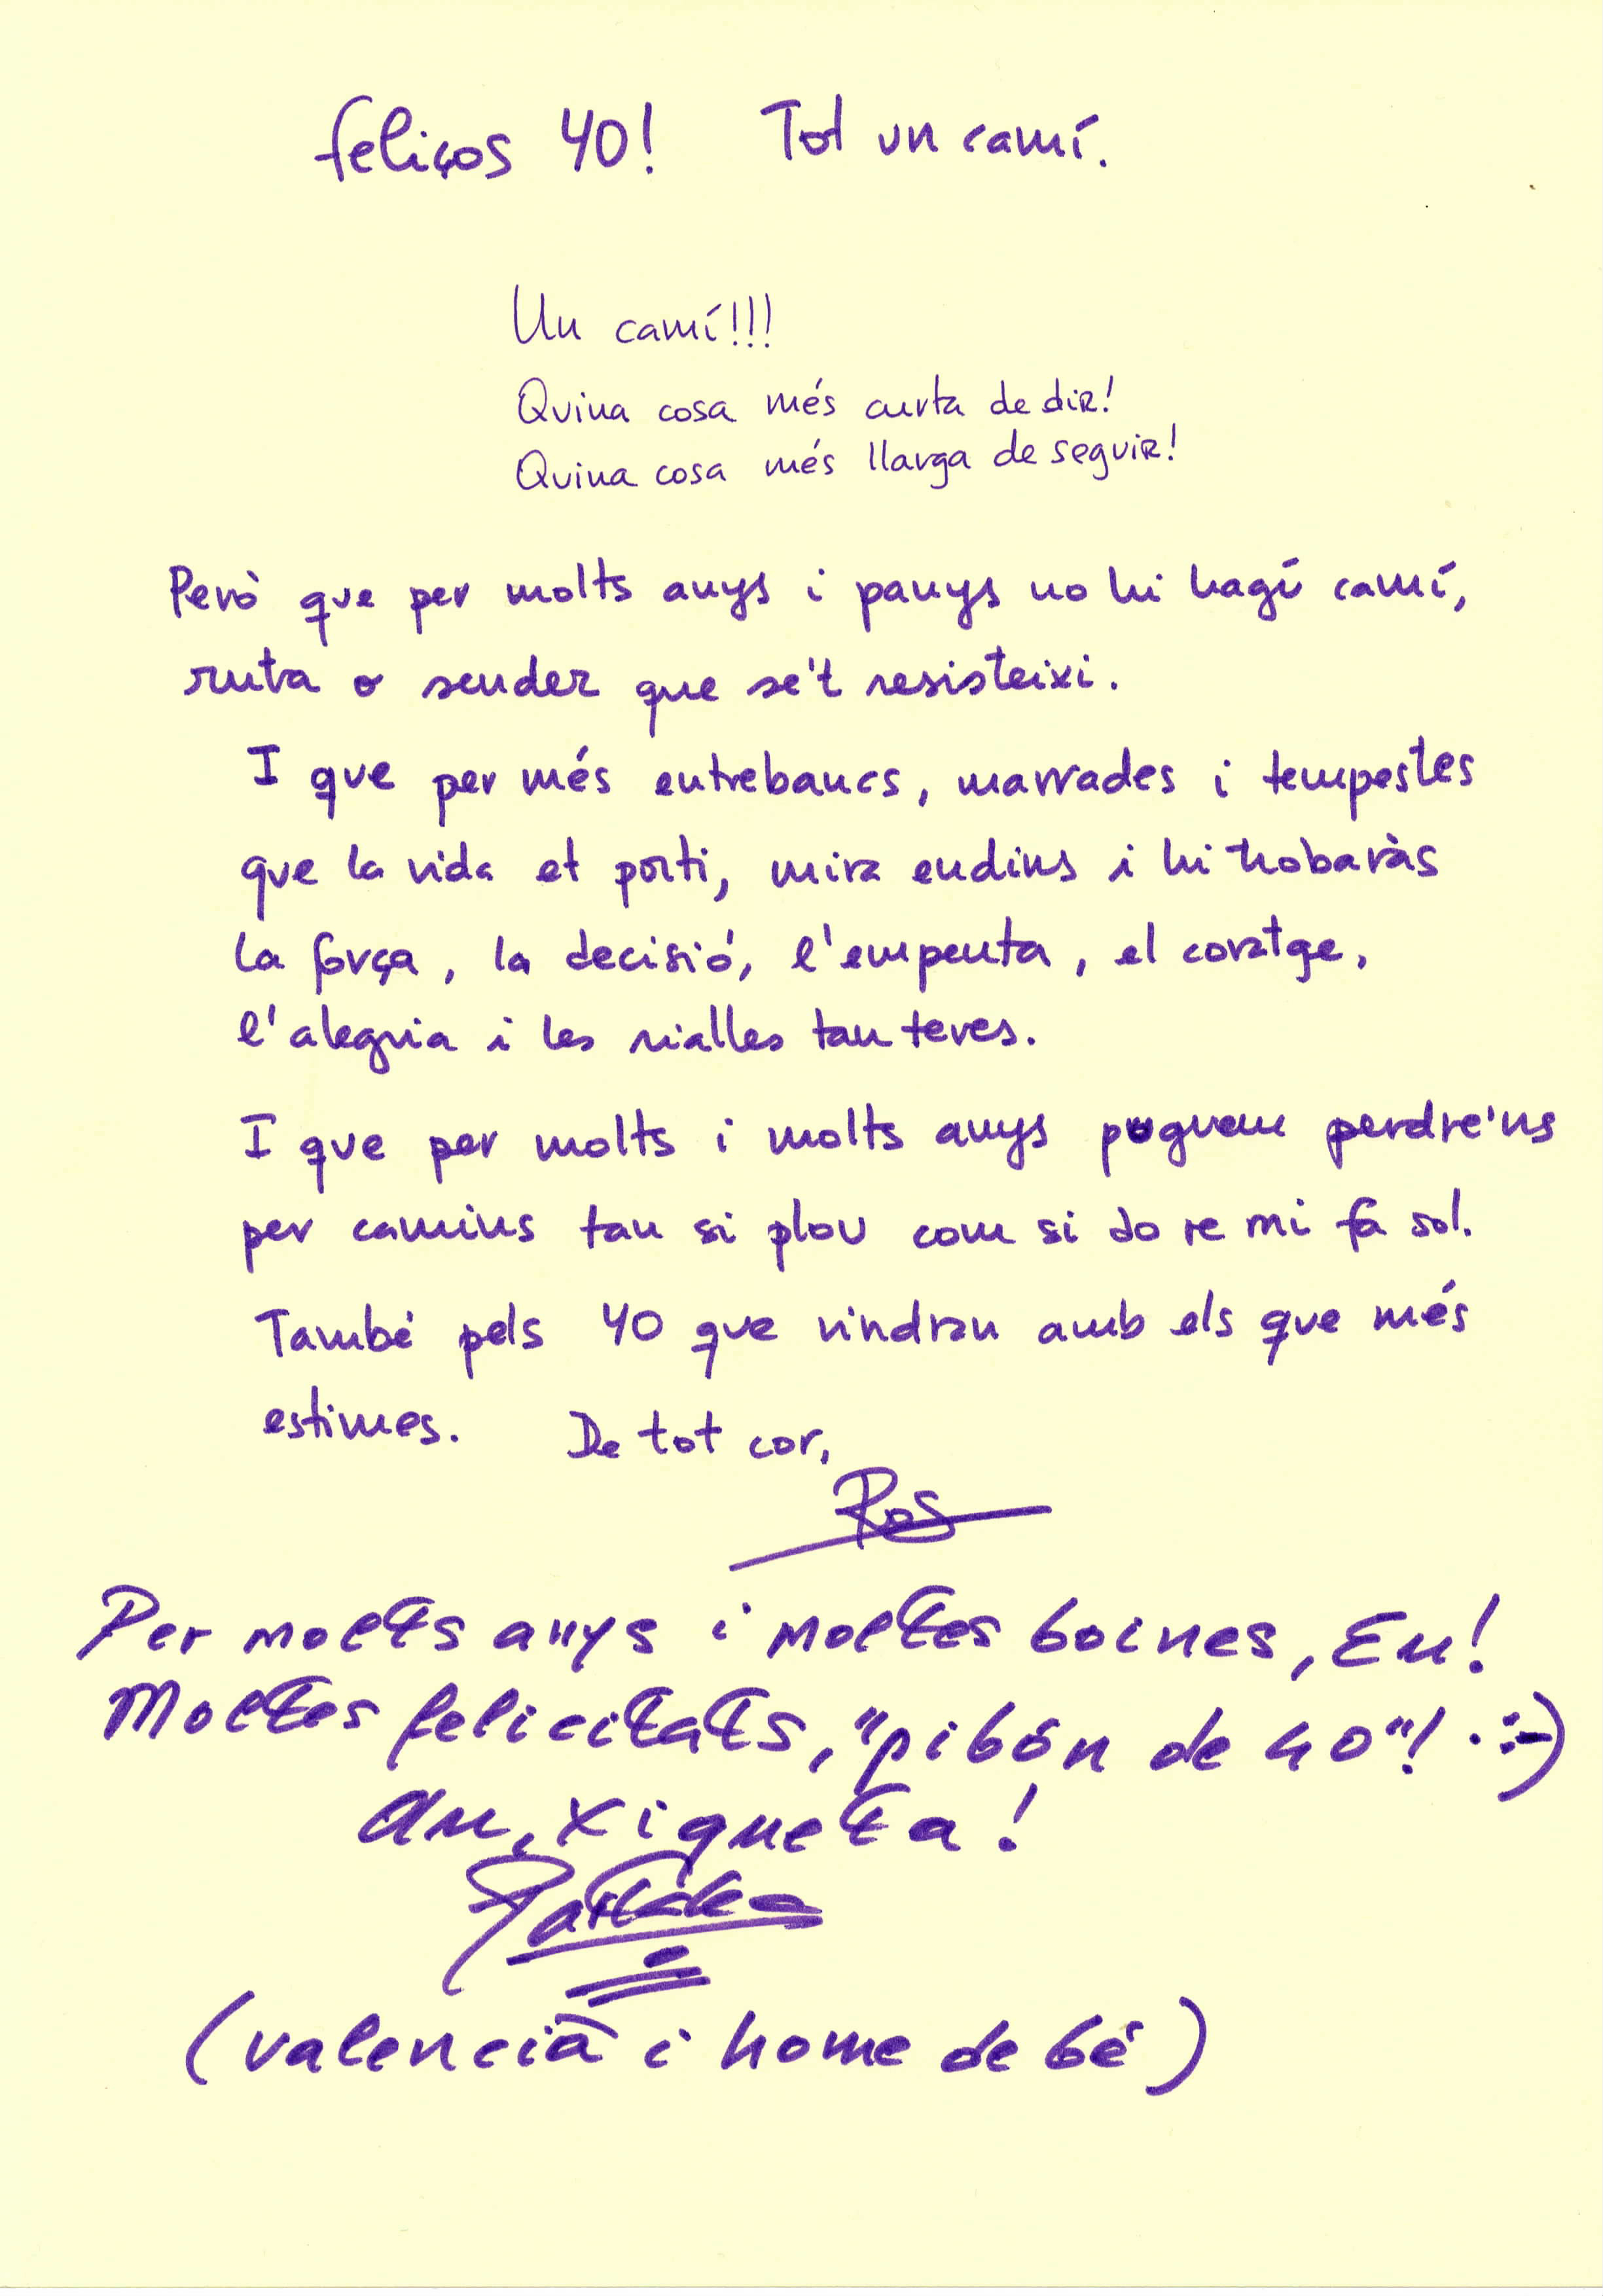 feliços 40! Tot un camí.
Un camí!!!
Quina cosa més curta de dir!
Quina cosa més llarga de seguir!
Però que per molts anys i panys no hi hagi camí,
ruta o sender que se't resisteixi.
I que per més entrebancs, marrades i tempestes
que la vida et porti, mira endins i hi trobaràs
la força, la decisió, l'empenta, el coratge,
l'alegria i les rialles tan teves.
I que per molts i molts anys poguem perdre'ns
per camins tan si plou com si do re mi fa sol.
També pels 40 que vindran amb els que més
estimes. De tot cor,
Ros
Per molts anys i moltes boines, Eu!
Moltes felicitats, "pibón de 40"! :-)
Au, xiqueta!
(valencià i home de bé)